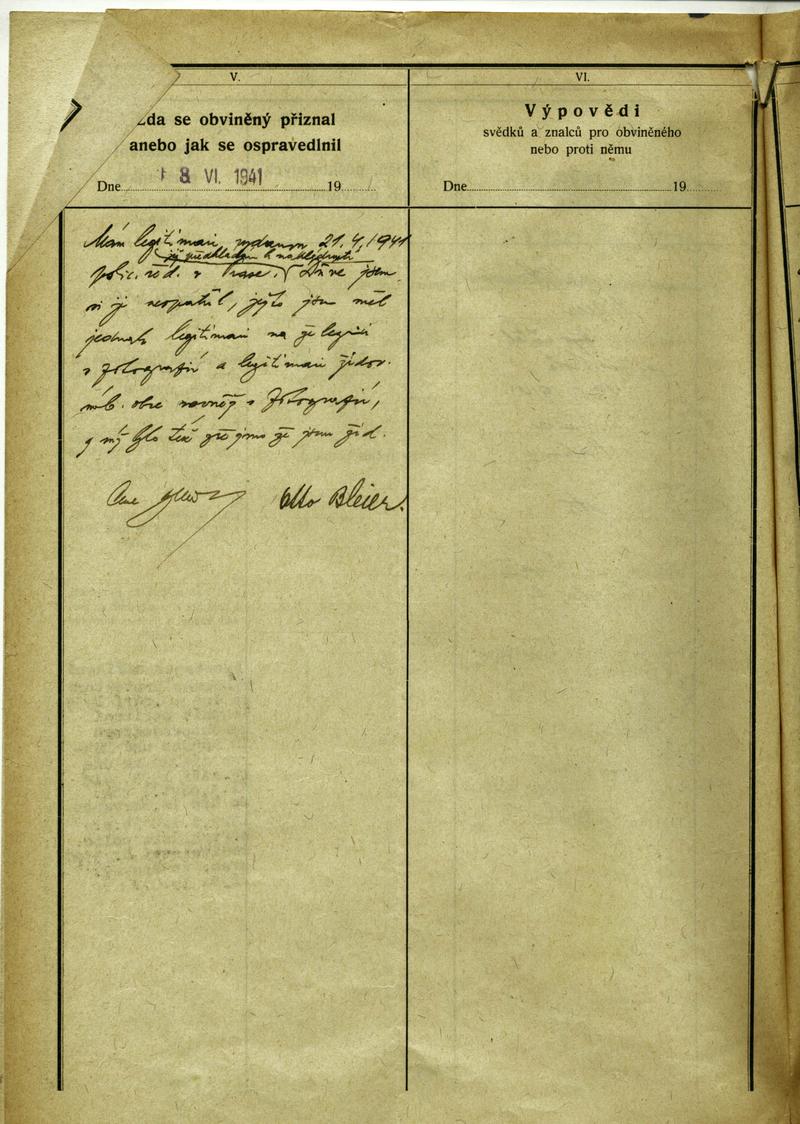 V.
Zda se obviněný přiznal
anebo jak se ospravedlnil
Dne 18 VI. 1941 19
Mám legitimaci, vydanou 21.4.1941
již předkládám k nahlédnutí
polic. řed. v Praze. Dříve jsem
si ji neopatřil, jéžto jsem měl
jednak legitimaci na železnici
s fotografií a legitimaci židov.
náb. obce rovněž s fotografií,
z níž bylo též zřejmo že jsem žid.
Otto Bleier.
VI.
Výpovědi
svědků a znalců pro obviněného
nebo proti němu
Dne 19